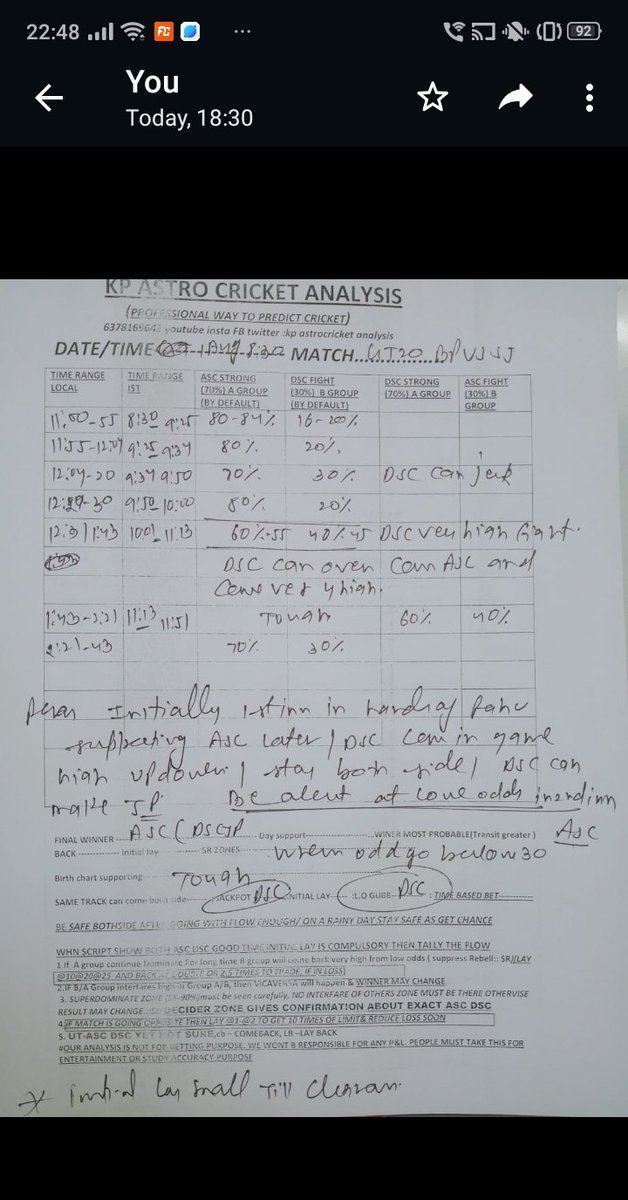 22:48
92
You
Today, 18:30
KP ASTRO CRICKET ANALYSIS
(PROFESSIONAL WAY TO PREDICT CRICKET)
youtube insta FB twitter :kp astrocricket analysis
DATE/TIME 1 Aug 8:30 MATCH...GT20...BP VS SJ
TIME RANGE LOCAL
TIME RANGE IST
ASC STRONG (70%) A GROUP (BY DEFAULT)
DSC FIGHT (30%) B GROUP (BY DEFAULT)
DSC STRONG (70%) A GROUP
ASC FIGHT (30%) B GROUP
11:00-55 8:30 9:25 80-84% 16-20%
11:55-12:04 9:25 9:34 80% 20%
12:04-20 9:34 9:50 70% 30% DSC can jerk
9:50 10:00 80% 20%
10:01 11:13 60%-55 40%-45 DSC very high fight.
DSC can over com ASC and
high.
1:43-2:21 11:13 11:51 Tough 60% 40%
2:21-43 70% 30%
Initially 1st inn in hand of
supporting ASC later / DSC com in game
high updown / stay both side / DSC can
make JP. Be alert at low odds in 2nd inn
FINAL WINNER ASC (DSC JP Day support WINER MOST PROBABLE(Transit greater) ASC
BACK Initial lay SR ZONES When odd go below 30
Birth chart supporting Tough
SAME TRACK can come both side JACKPOT DSC INITIAL LAY :L.O GUBB DSC : TIME BASED BET
BE SAFE BOTHSIDE AFTER GOING WITH FLOW ENOUGH/ ON A RAINY DAY STAY SAFE AS GET CHANCE
WHN SCRIPT SHOW BOTH ASC DSC GOOD TIME INITIAL LAY IS COMPULSORY THEN TALLY THE FLOW
1.If A group continue Dominate For long time B group will come back very high from low odds ( suppress Rebell:: SR)LAY
@10@20@25 AND BACK AT DOUBLE OR 2.5 TIMES TO TRADE, IF IN LOSS)
2.IF B/A Group interfares high in Group A/B, then VICAVERSA will happen & WINNER MAY CHANGE
3. SUPERDOMINATE ZONE must be seen carefully, NO INTERFARE OF OTHERS ZONE MUST BE THERE OTHERVISE
RESULT MAY CHANGE DECIDER ZONE GIVES CONFIRMATION ABOUT EXACT ASC DSC
4.IF MATCH IS GOING OPPOSITE THEN LAY @1-@2 TO GET 10 TIMES OF LIMIT& REDUCE LOSS SOON
5. UT-ASC DSC YET NOT SURE,cb – COMEBACK, LB –LAY BACK
#OUR ANALYSIS IS NOT FOR BETTING PURPOSE. WE WONT B RESPONSIBLE FOR ANY P&L. PEOPLE MUST TAKE THIS FOR
ENTERTAINMENT OR STUDY ACCURACY PURPOSE
* Initial lay small till